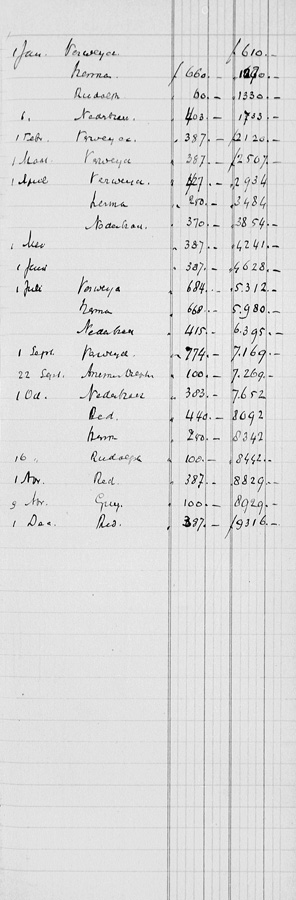 1 Jan. Verweya. f 610.—
Herma. f 660.— 1270.—
Rudolph 60.— 1330.—
6, Nederhau. 403.— 1733.—
1 Febr. Verweya. „ 387.— f 2120.—
1 Maart Verweya „ 387.— f 2507.—
1 April Verweya. „ 427.— 2934
Herma 3484
Nederhau. „ 370.— 3854.—
1 Mei „ 387.— 4241.—
1 Juni „ 387.— 4628.—
1 Juli Verweya „ 684.— 5.312.—
Herma „ 668.— 5.980.—
Nederhau „ 415.— 6.395.—
1 Sept. Verweya. „ 774.— 7.169.—
22 Sept. „ 100.— 7.269.—
1 Oct. Nederhau „ 383.— 7.652
Red. „ 440.— 8092
Herma „ 250.— 8342
16 „ Rudolph „ 100.— 8442.—
1 Nov. Red. „ 387.— 8829.—
9 Nov. Guy. „ 100.— 8929.—
1 Dec. Red. „ 387.— f 9316.—